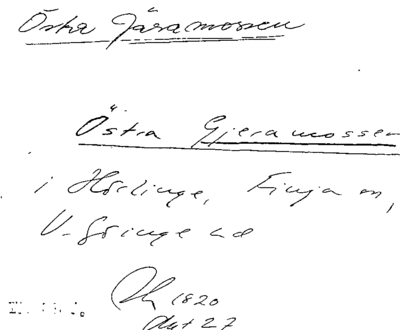 Östra Järamossen
Östra Gjeramossen
i Hörlinge, Finja sn,
V. Göinge hd
Rk 1820
Akt 27